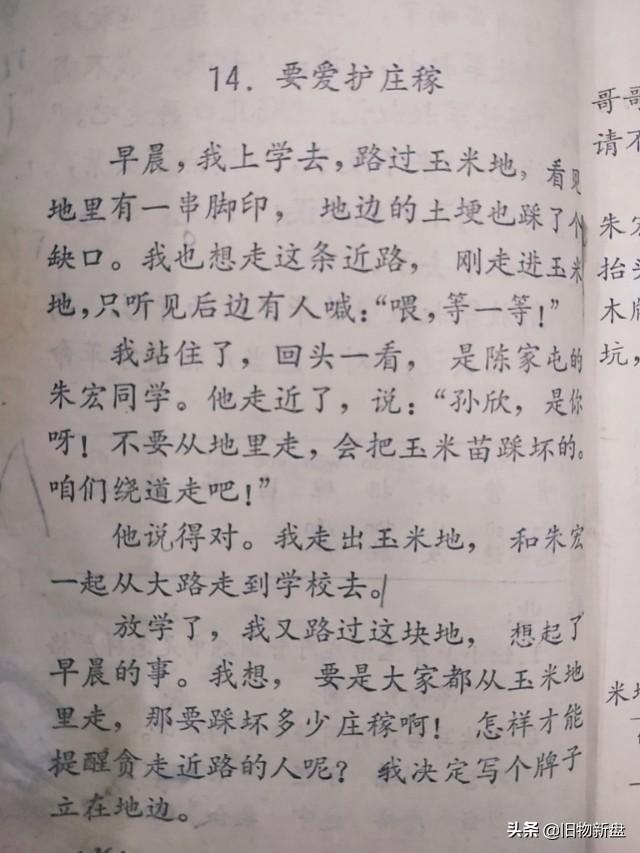 14. 要爱护庄稼
早晨，我上学去，路过玉米地，看见
地里有一串脚印，地边的土埂也踩了个
缺口。我也想走这条近路，刚走进玉米
地，只听见后边有人喊：“喂，等一等！”
我站住了，回头一看，是陈家屯的
朱宏同学。他走近了，说：“孙欣，是你
呀！不要从地里走，会把玉米苗踩坏的。
咱们绕道走吧！”
他说得对。我走出玉米地，和朱宏
一起从大路走到学校去。
放学了，我又路过这块地，想起了
早晨的事。我想，要是大家都从玉米地
里走，那要踩坏多少庄稼啊！怎样才能
提醒贪走近路的人呢？我决定写个牌子
立在地边。
哥哥
请不
朱宏
抬头
木牌
坑，
米地
头条 @旧物新盘